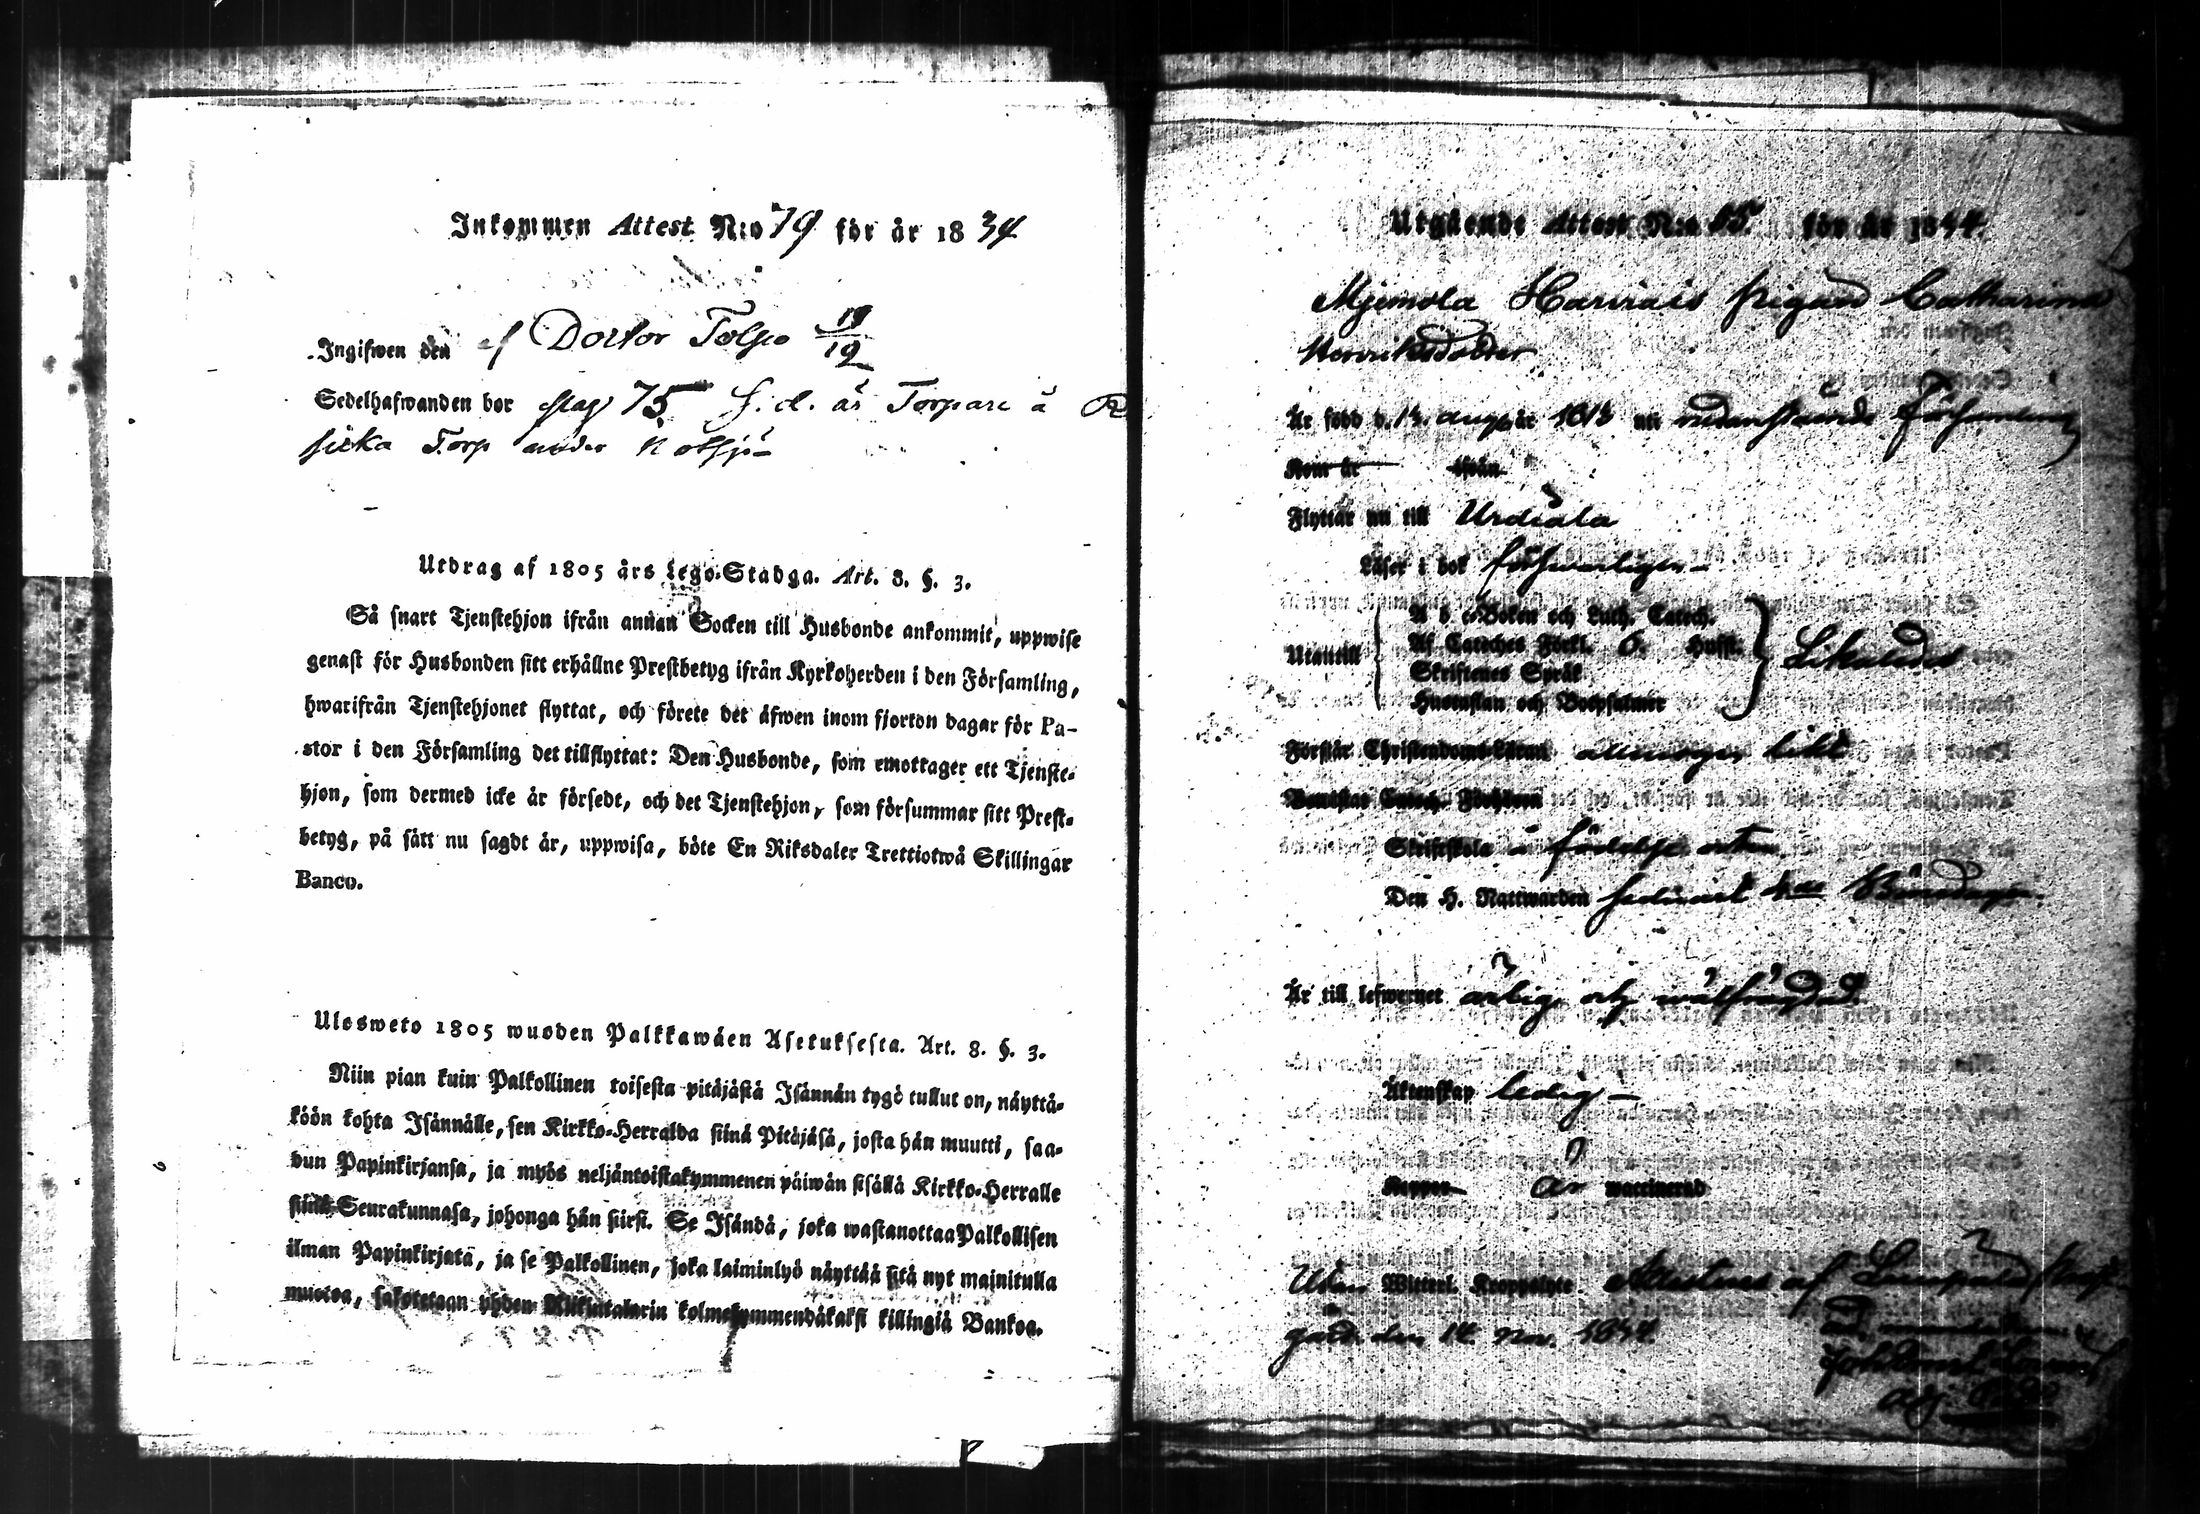 Inkommen Attest N:o 79 för år 1834
Ingifwen den af Doctor Tolpo 19/12
Sedelhafwanden bor pag 75 f. d. är Torpare å
Torp under
Utdrag af 1805 års Lego-Stadga. Art. 8. §. 3.
Så snart Tjenstehjon ifrån annan Socken till Husbonde ankommit, uppwise
genast för Husbonden sitt erhållne Prestbetyg ifrån Kyrkoherden i den Församling,
hwarifrån Tjenstehjonet flyttat, och förete det äfwen inom fjorton dagar för Pa-
stor i den Församling det tillflyttat: Den Husbonde, som emottager ett Tjenste-
hjon, som dermed icke är försedt, och det Tjenstehjon, som försummar sitt Prest-
betyg, på sätt nu sagdt är, uppwisa, böte En Riksdaler Trettiotwå Skillingar
Banco.
Ulosweto 1805 wuoden Palkkawäen Asetuksesta. Art. 8. §. 3.
Niin pian kuin Palkollinen toisesta pitäjästä Isännän tygö tullut on, näyttä-
köön kohta Isännälle, sen Kirkko-Herralda siinä Pitäjäsä, josta hän muutti, saa-
dun Papinkirjansa, ja myös neljäntoistakymmenen päiwän sisällä Kirkko-Herralle
siinä Seurakunnasa, johonga hän siirsi. Se Isändä, joka wastanottaa Palkollisen
ilman Papinkirjata, ja se Palkollinen, joka laiminlyö näyttää sitä nyt mainitulla
muotoa, sakotetaan yhden Riikintalarin kolmekymmendäkaksi killingiä Bankoa.
Utgående Attest N:o 85. för år 1834.
Mjemola Harirais pigan Catharina
Henriksdotter
Är född d. 13. aug. år 1813 uti nedanstående Församling
Kom år ifrån
Flyttar nu till Urdiala
Läser i bok försvarligen
Utantill
A b c-Boken och Luth. Catech.
Af Cateches Förkl. O. Husst.
Skriftenes Språk
Hustaflan och Botpsalmer
Likaledes
Förstår Christendoms-Läran allmoge likt
Bewistar Catech. Förhören
Skriftskola å födelse orten
Den H. Nattwarden sednast Böndags
Är till lefwernet ärlig och wälfrägdad.
Äktenskap ledig
Koppor är waccinerad
Utan Witterl. Kropps-lyte. Attesteras af Lempälä
gård den 14. Nov. 1834.